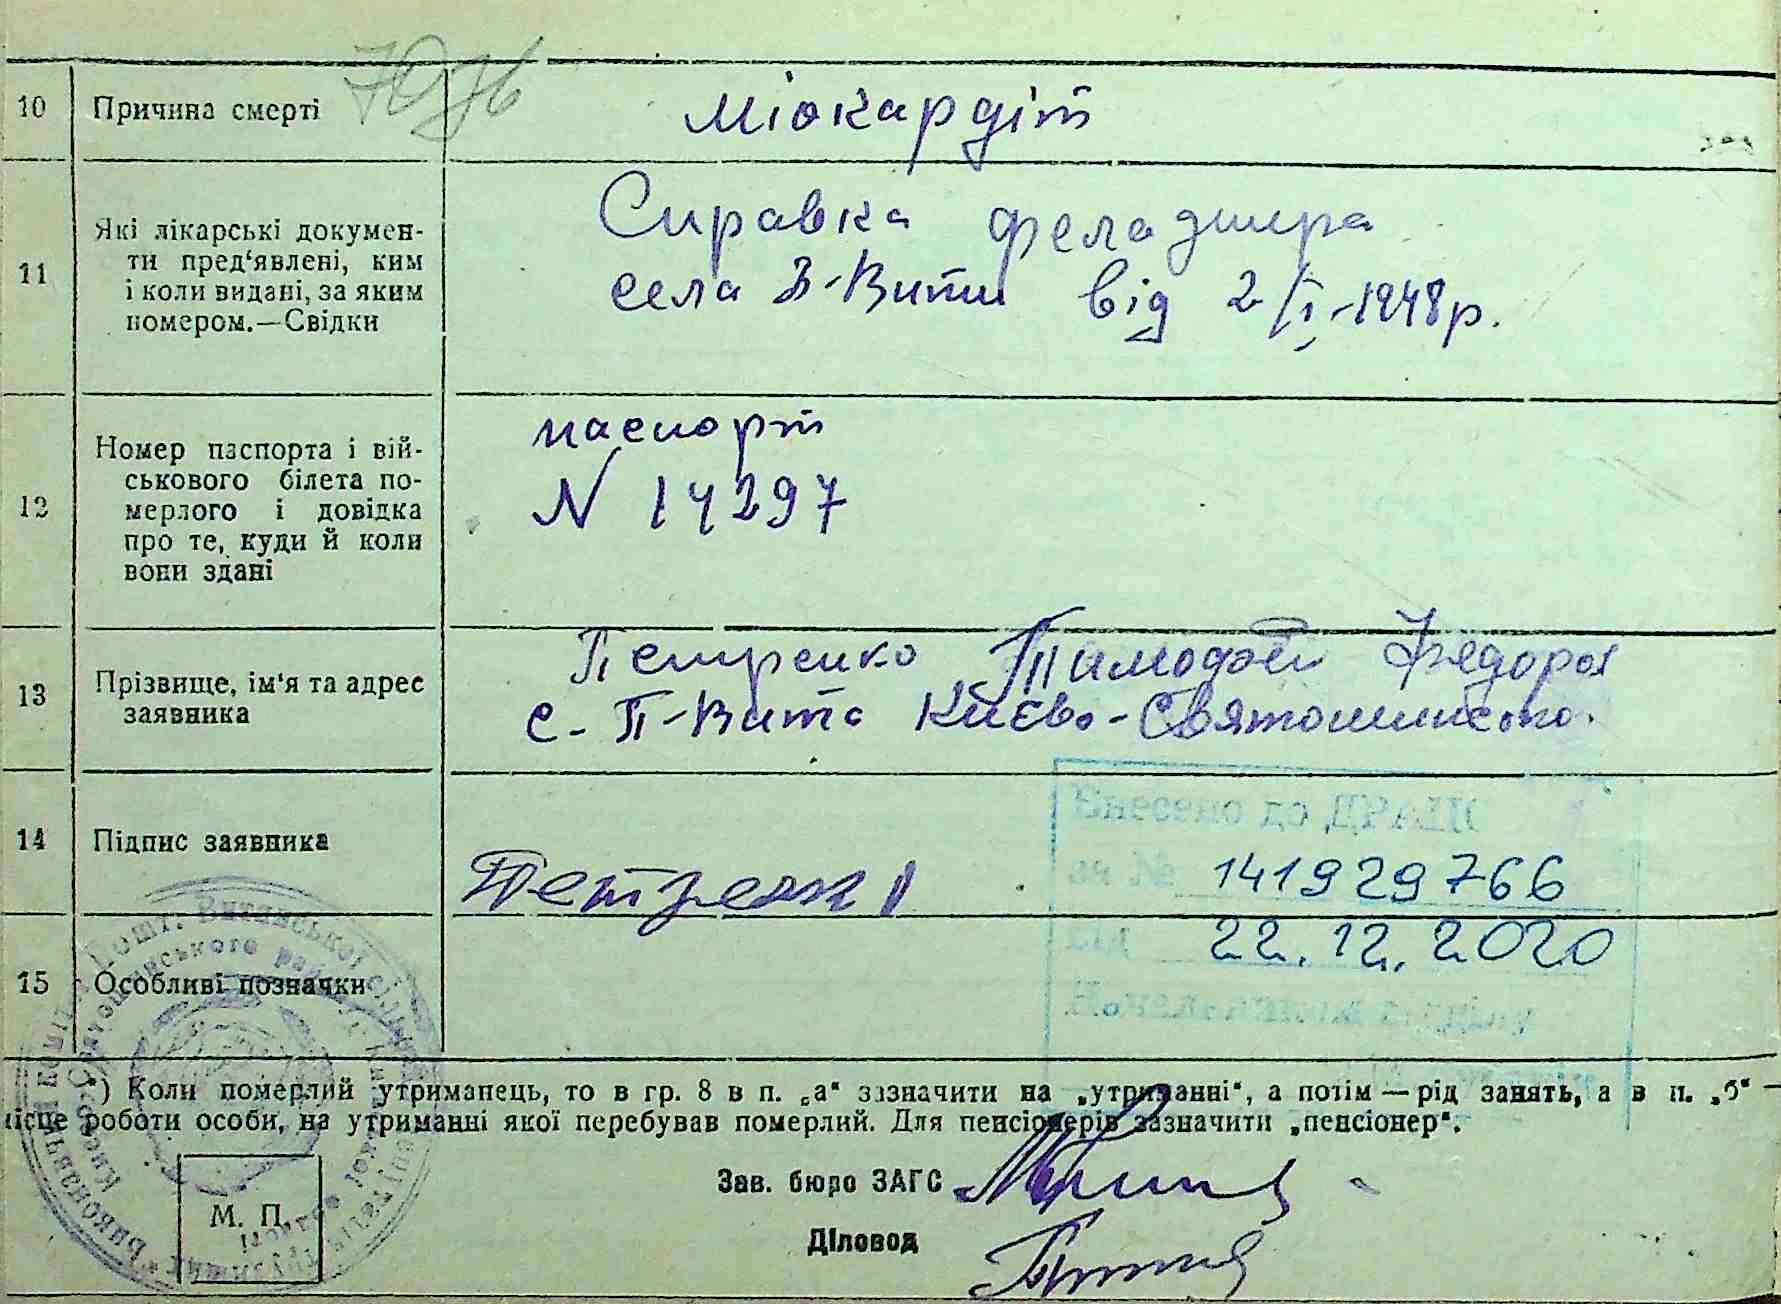 10 Причина смерті Міокардіт
11 Які лікарські докумен-
ти пред‘явлені, ким
і коли видані, за яким
номером.—Свідки
Справка феладшера
села П-Вити від 2/I-1948р.
12 Номер паспорта і вій-
ськового білета по-
мерлого і довідка
про те, куди й коли
вони здані
паспорт
N 14297
13 Прізвище, ім‘я та адрес
заявника
Петренко Тимофей Федоров
с. П-Вита Києво-Святошинсько.
14 Підпис заявника
Внесено до ДРАЦС
за № 141929766
від 22.12.2020
15 Особливі позначки
*) Коли померлий утриманець, то в гр. 8 в п. „а“ зазначити на „утриманні“, а потім — рід занять, а в п. „б“ —
місце роботи особи, на утриманні якої перебував померлий. Для пенсіонерів зазначити „пенсіонер“.
Зав. бюро ЗАГС
М. П.
Діловод